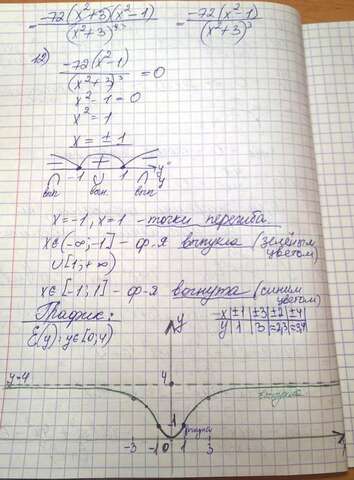 = -72(x²+3)(x²-1) / (x²+3)⁴³ = -72(x²-1) / (x²+3)³
-72(x²-1) / (x²+3)³ = 0
x²-1=0
x²=1
x=±1
- + -
-1 1 y" y
вып вогн вып
x=-1, x=1 - точки перегиба.
x∈(-∞;-1] - ф-я выпукла (зелёным цветом)
∪[1;+∞)
x∈[-1;1] - ф-я вогнута (синим цветом)
График:
x ±1 ±3 ±2 ±4
E(y): y∈[0;4)
y 1 3 ≈2,3 ≈3,4
y
y=4 4
выпукла
1 вогнута
-3 -1 0 1 3